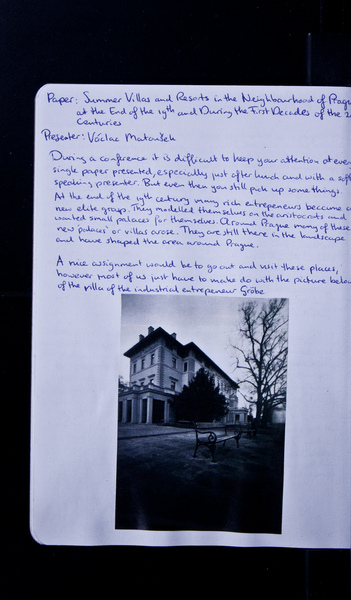 Paper: Summer Villas and Resorts in the Neighbourhood of Prague
at the End of the 19th and During the First Decades of the 20
Centuries
Presenter: Václav Matoušek
During a conference it is difficult to keep your attention at every
single paper presented, especially just after lunch and with a soft
speaking presenter. But even then you still pick up some things.
At the end of the 19th century many rich entrepeneurs became a
new elite group. They modelled themselves on the aristocrats and
wanted small palaces for themselves. Around Prague many of these
'new palaces' or villas arose. They are still there in the landscape
and have shaped the area around Prague.
A nice assignment would be to go out and visit these places,
however most of us just have to make do with the picture below
of the villa of the industrial entrepeneur Gröbe